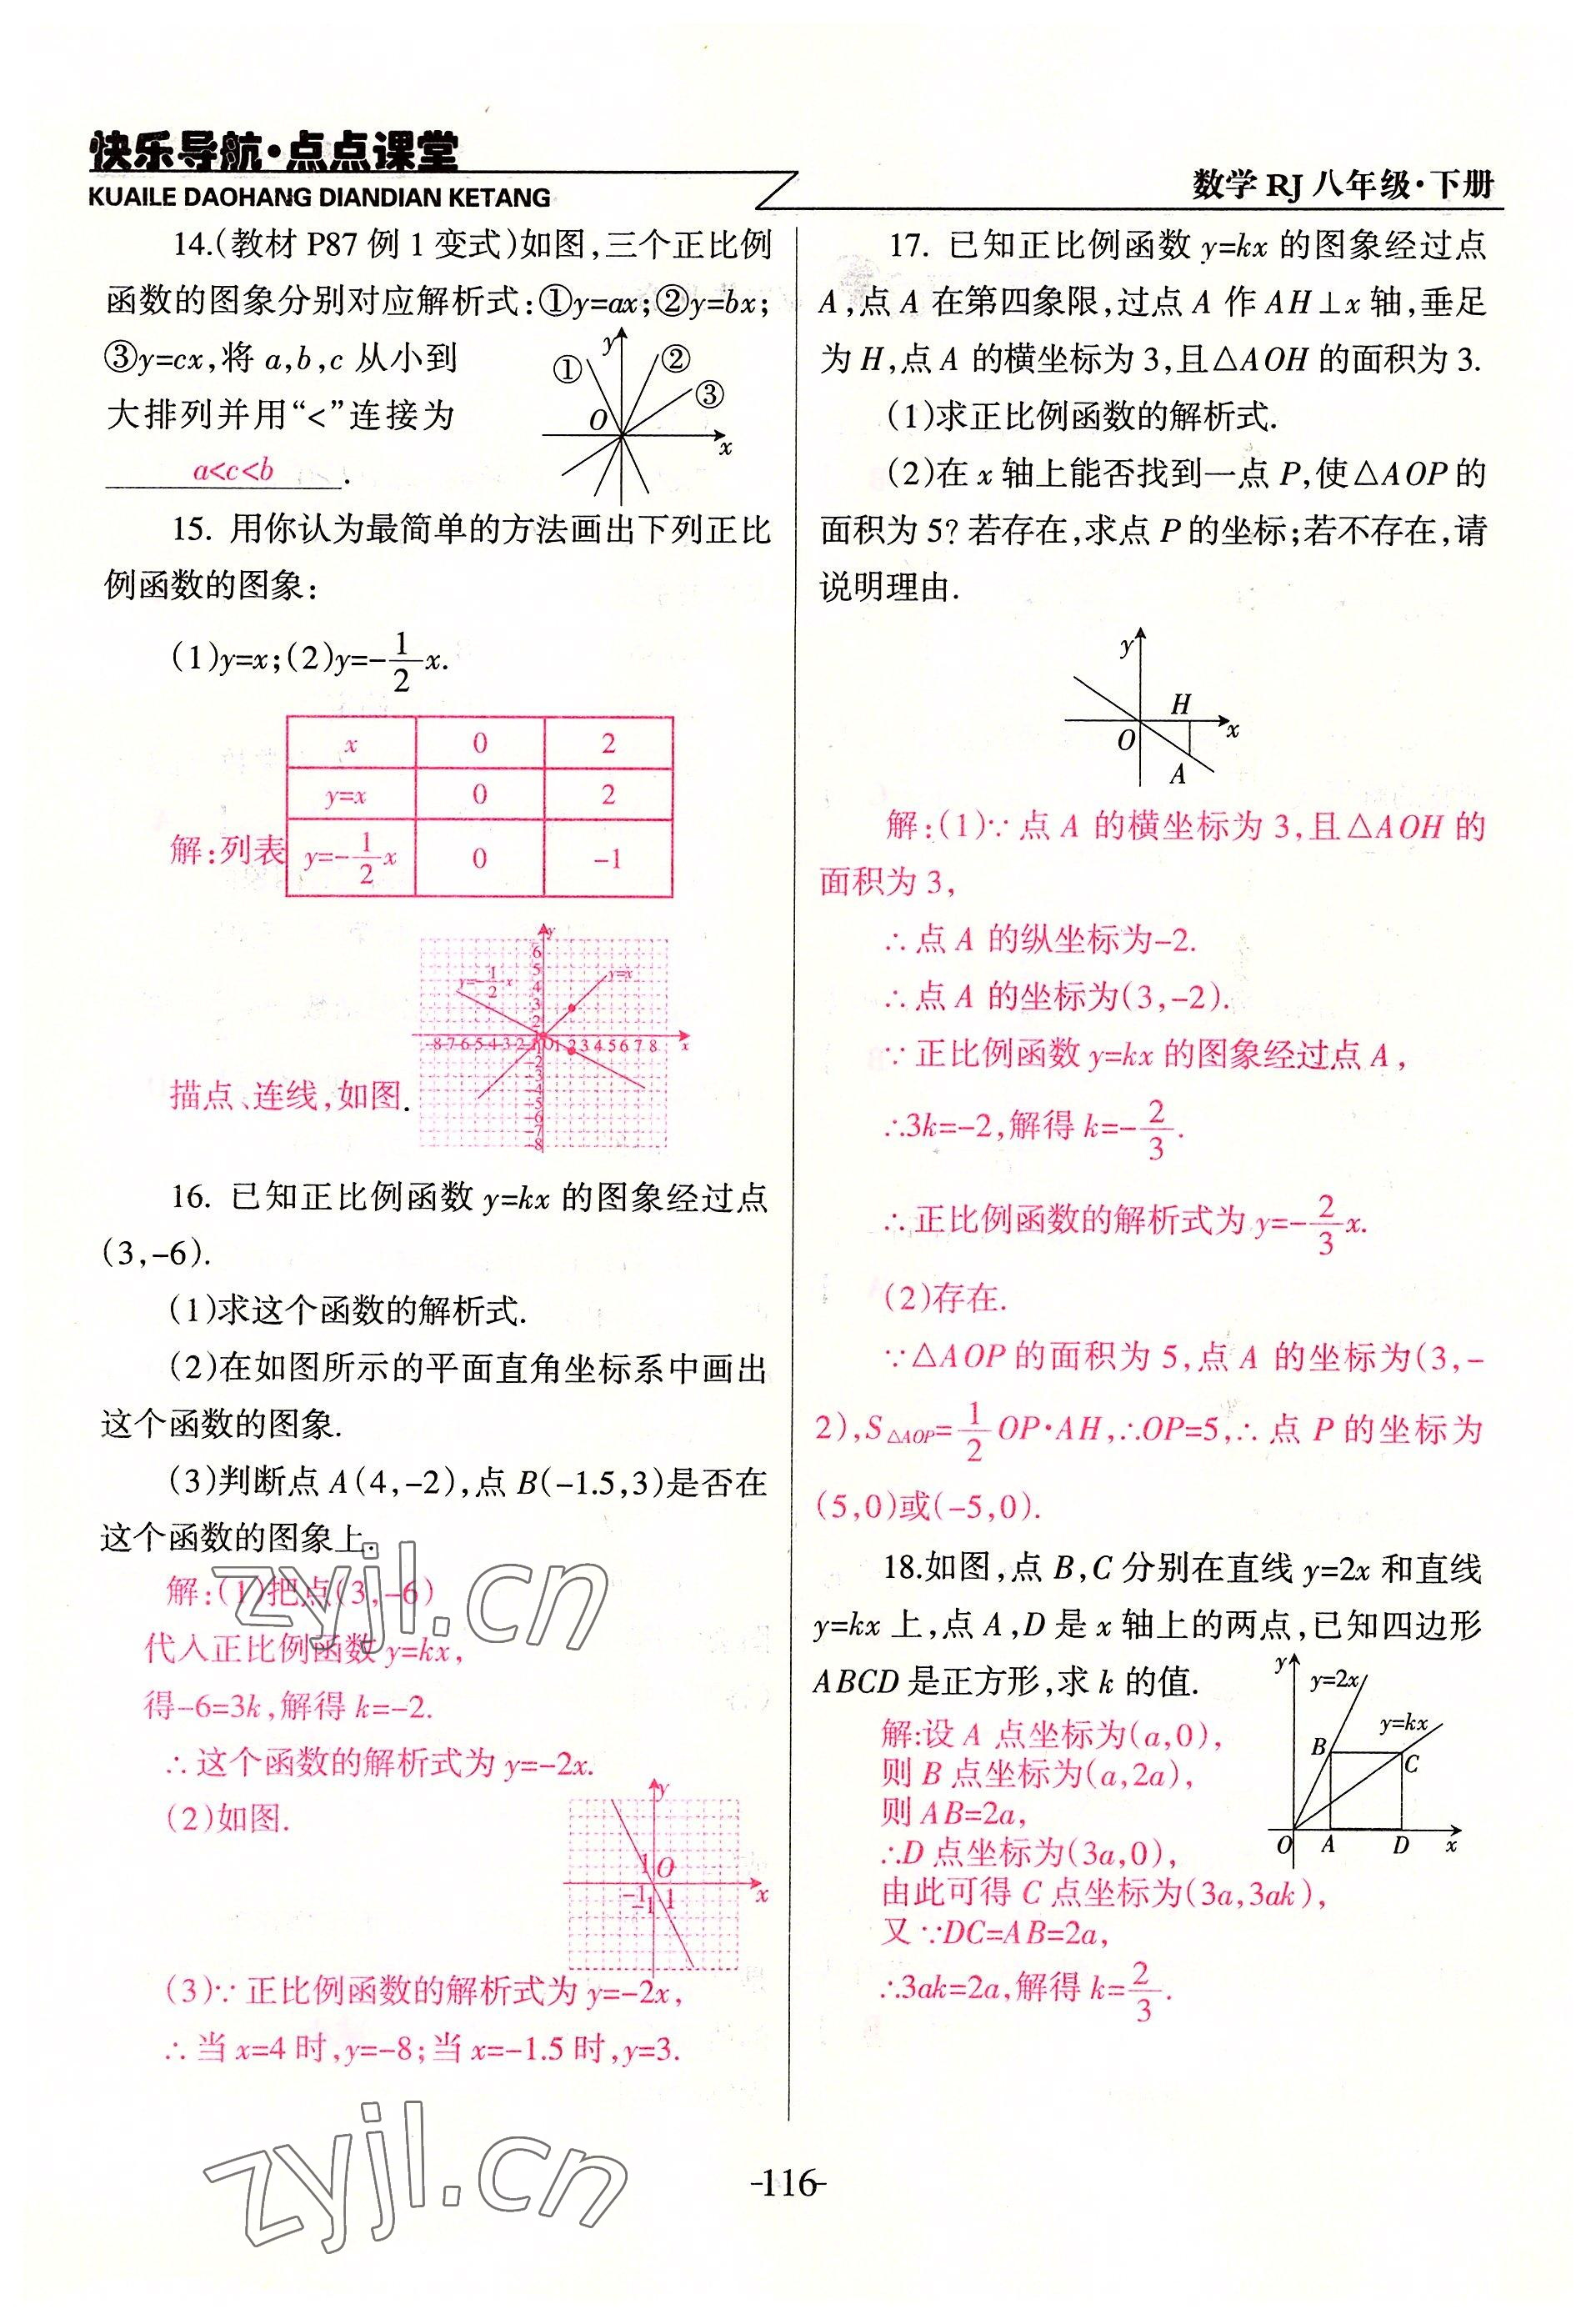 快乐导航·点点课堂
KUAILE DAOHANG DIANDIAN KETANG
数学 RJ 八年级·下册
14.(教材 P87 例 1 变式)如图,三个正比例
函数的图象分别对应解析式:①y=ax;②y=bx;
③y=cx,将 a,b,c 从小到
大排列并用“<”连接为
a<c<b.
① ② ③ y O x
15. 用你认为最简单的方法画出下列正比
例函数的图象:
(1)y=x;(2)y=-1/2x.
x 0 2
y=x 0 2
解:列表 y=-1/2x 0 -1
y=-1/2x y=x
描点、连线,如图.
16. 已知正比例函数 y=kx 的图象经过点
(3,-6).
(1)求这个函数的解析式.
(2)在如图所示的平面直角坐标系中画出
这个函数的图象.
(3)判断点 A(4,-2),点 B(-1.5,3)是否在
这个函数的图象上.
解:(1)把点(3,-6)
代入正比例函数 y=kx,
得-6=3k,解得 k=-2.
∴这个函数的解析式为 y=-2x.
(2)如图.
y 1 O -1 -1 1 x
(3)∵正比例函数的解析式为 y=-2x,
∴当 x=4 时,y=-8;当 x=-1.5 时,y=3.
17. 已知正比例函数 y=kx 的图象经过点
A,点 A 在第四象限,过点 A 作 AH⊥x 轴,垂足
为 H,点 A 的横坐标为 3,且△AOH 的面积为 3.
(1)求正比例函数的解析式.
(2)在 x 轴上能否找到一点 P,使△AOP 的
面积为 5?若存在,求点 P 的坐标;若不存在,请
说明理由.
y H O x A
解:(1)∵点 A 的横坐标为 3,且△AOH 的
面积为 3,
∴点 A 的纵坐标为-2.
∴点 A 的坐标为(3,-2).
∵正比例函数 y=kx 的图象经过点 A,
∴3k=-2,解得 k=-2/3.
∴正比例函数的解析式为 y=-2/3x.
(2)存在.
∵△AOP 的面积为 5,点 A 的坐标为(3,-
2),S△AOP=1/2OP·AH,∴OP=5,∴点 P 的坐标为
(5,0)或(-5,0).
18.如图,点 B,C 分别在直线 y=2x 和直线
y=kx 上,点 A,D 是 x 轴上的两点,已知四边形
ABCD 是正方形,求 k 的值.
y y=2x y=kx B C O A D x
解:设 A 点坐标为(a,0),
则 B 点坐标为(a,2a),
则 AB=2a,
∴D 点坐标为(3a,0),
由此可得 C 点坐标为(3a,3ak),
又∵DC=AB=2a,
∴3ak=2a,解得 k=2/3.
zyjl.cn
zyjl.cn
-116-